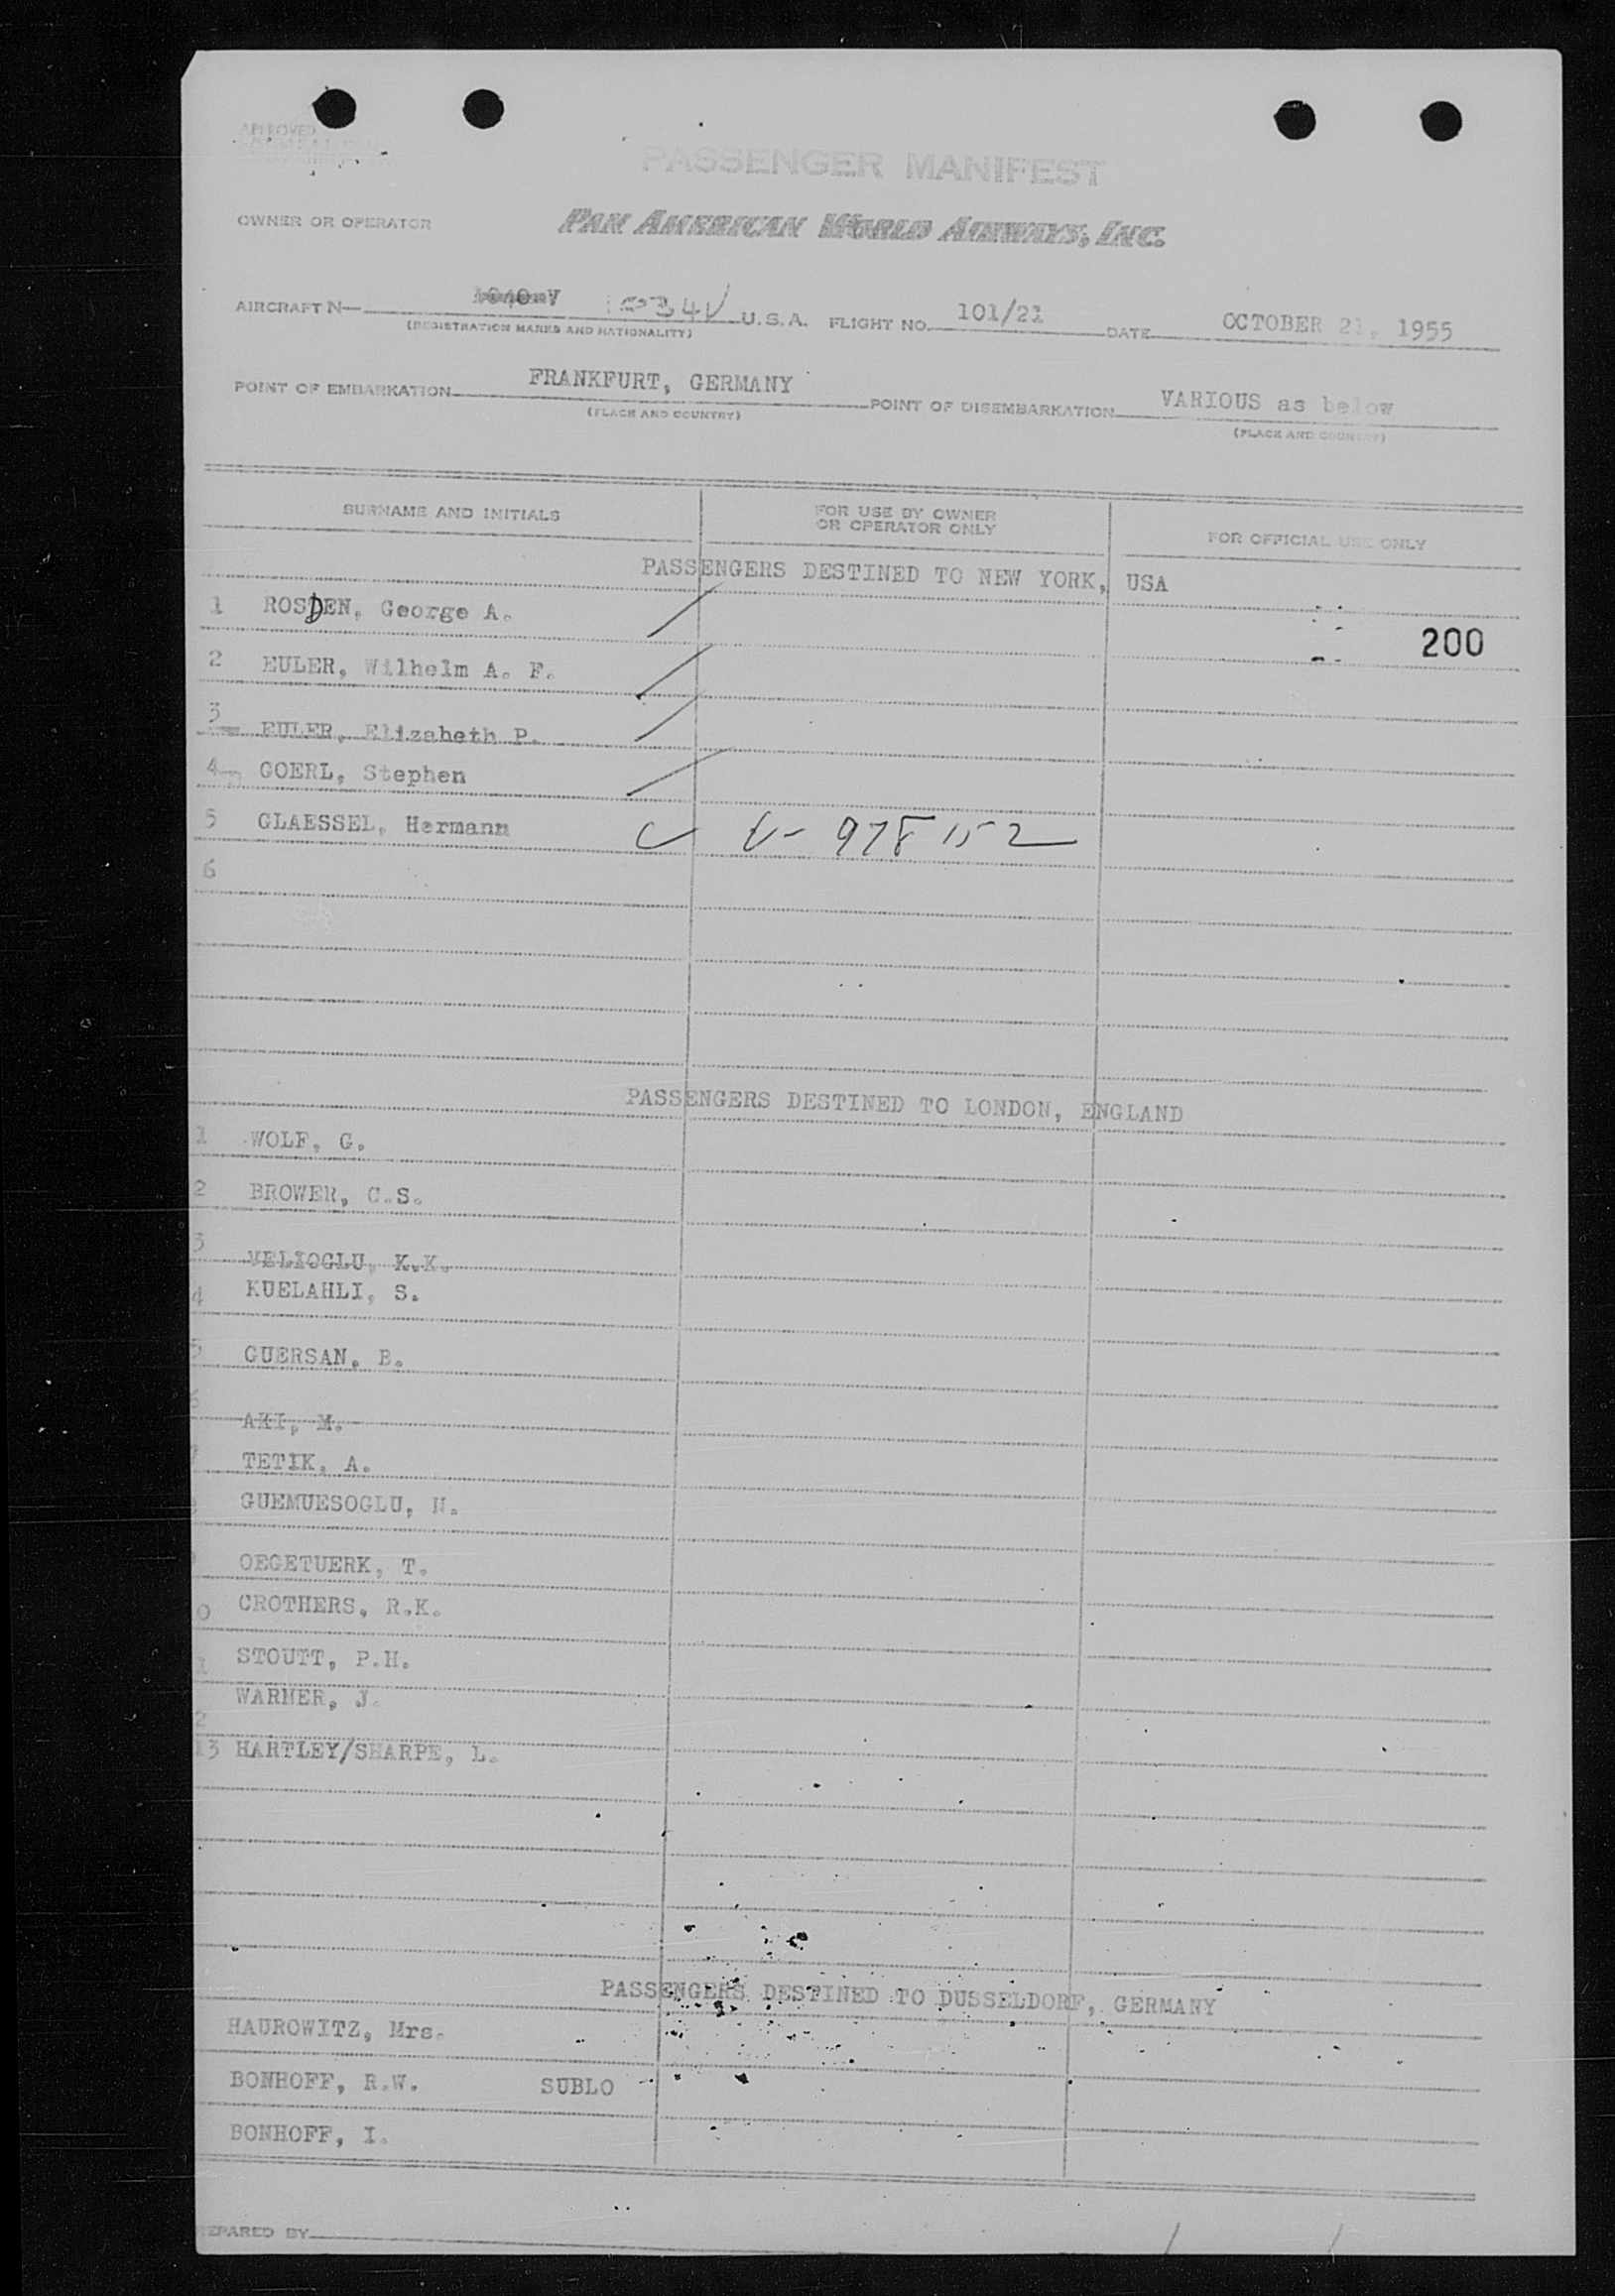 APPROVED
PASSENGER MANIFEST
OWNER OR OPERATOR PAN AMERICAN WORLD AIRWAYS, INC.
AIRCRAFT N— 1040 V 1034V U.S.A. FLIGHT NO. 101/21 DATE OCTOBER 21, 1955
(REGISTRATION MARKS AND NATIONALITY)
POINT OF EMBARKATION FRANKFURT, GERMANY POINT OF DISEMBARKATION VARIOUS as below
(PLACE AND COUNTRY) (PLACE AND COUNTRY)
SURNAME AND INITIALS FOR USE BY OWNER OR OPERATOR ONLY FOR OFFICIAL USE ONLY
PASSENGERS DESTINED TO NEW YORK, USA
1 ROSDEN, George A.
200
2 EULER, Wilhelm A. F.
3 EULER, Elizabeth P.
4 GOERL, Stephen
5 GLAESSEL, Hermann V- 978152
6
PASSENGERS DESTINED TO LONDON, ENGLAND
1 WOLF, G.
2 BROWER, C.S.
3 VELIOGLU, K.K.
4 KUELAHLI, S.
5 GUERSAN, B.
6 AKI, M.
7 TETIK, A.
GUEMUESOGLU, N.
OEGETUERK, T.
0 CROTHERS, R.K.
1 STOUTT, P.H.
2 WARNER, J.
13 HARTLEY/SHARPE, L.
PASSENGERS DESTINED TO DUSSELDORF, GERMANY
HAUROWITZ, Mrs.
BONHOFF, R.W. SUBLO
BONHOFF, I.
EPARED BY